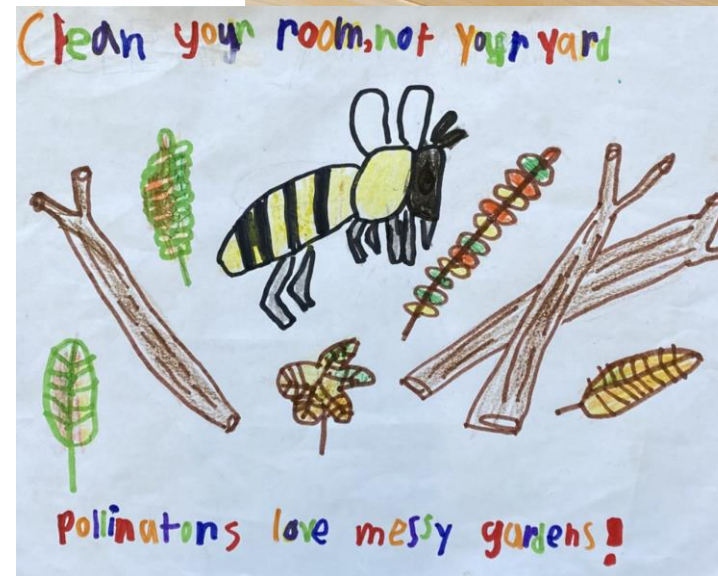 Clean your room, not your yard
pollinatons love messy gardens!